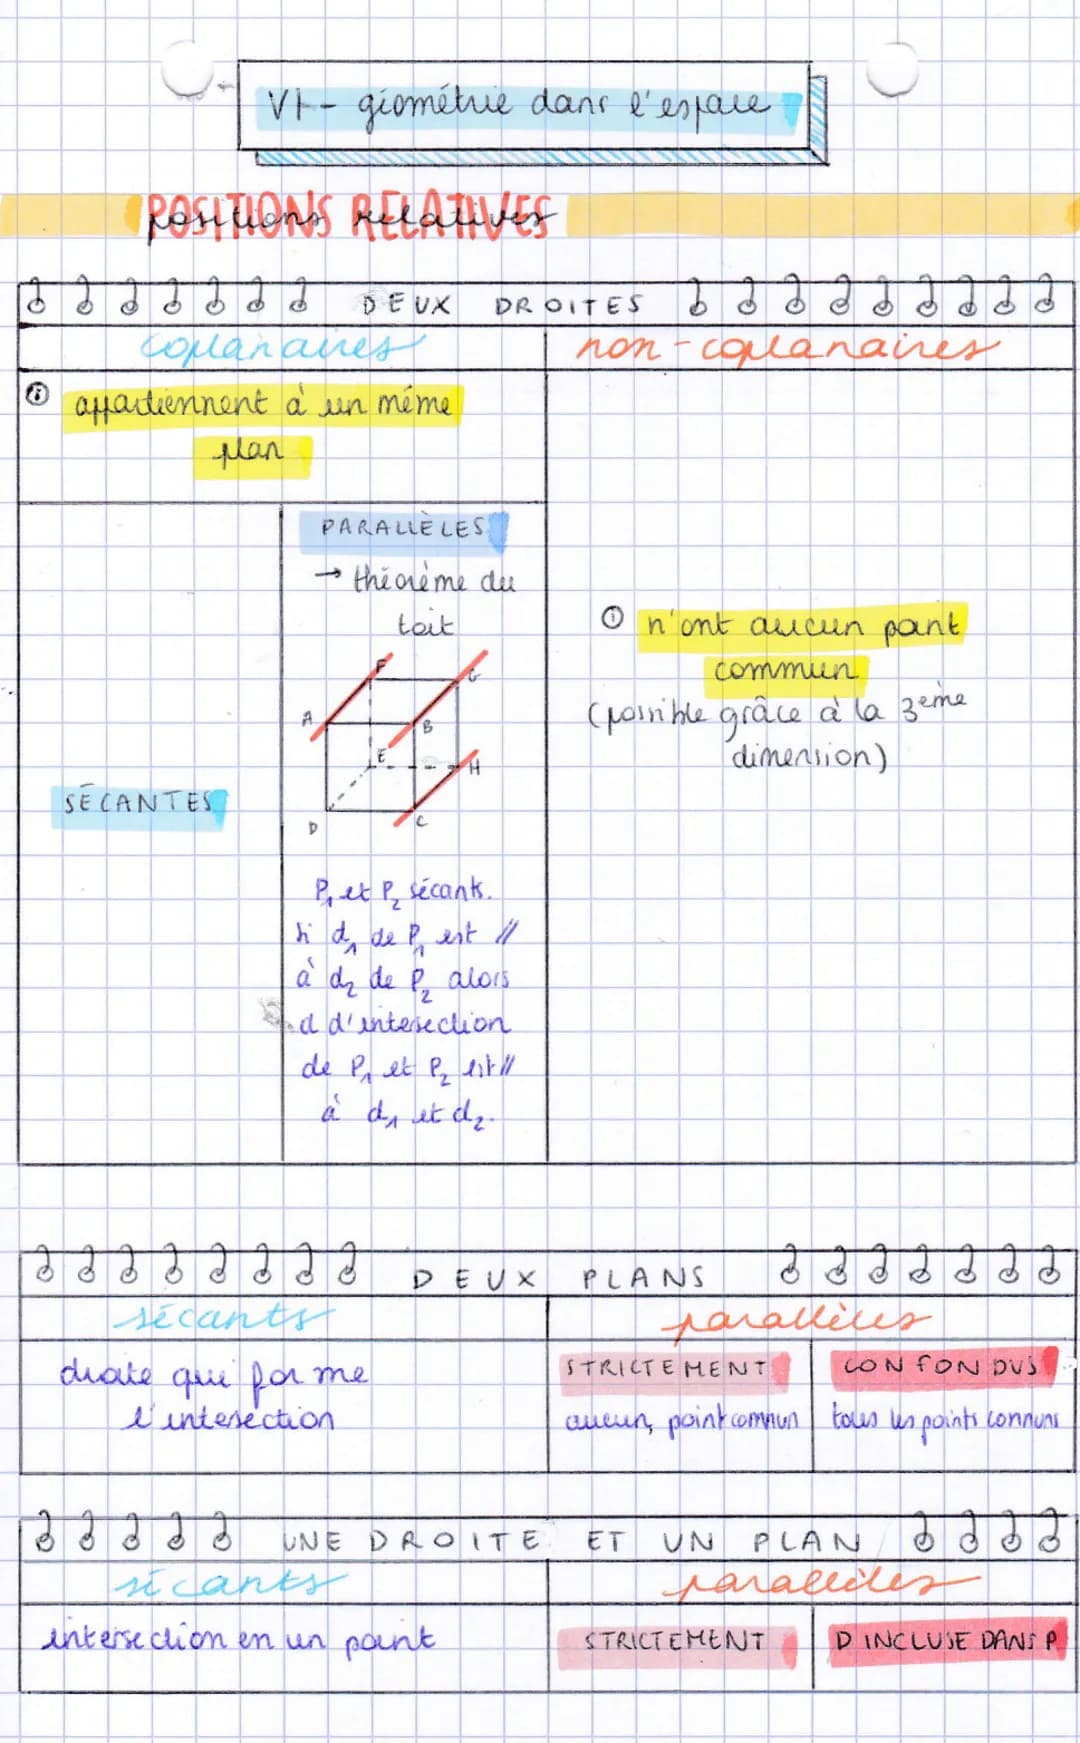 VI - géométrie dans l'espace
POSITIONS RELATIVES
positions relatives
DEUX DROITES
coplanaires
non-coplanaires
appartiennent à un même
plan
SÉCANTES
PARALLÈLES
→ théorème du
toit
F
G
A
B
E
H
D
C
P₁ et P₂ sécants.
Si d₁ de P₁ est //
à d₂ de P₂ alors
d d'intersection
de P₁ et P₂ est //
à d₁ et d₂.
n'ont aucun point
commun
(possible grâce à la 3ème
dimension)
DEUX PLANS
sécants
parallèles
droite qui forme
l'intersection
STRICTEMENT
aucun point commun
CONFONDUS
tous les points communs
UNE DROITE ET UN PLAN
sécants
parallèles
intersection en un point
STRICTEMENT
D INCLUSE DANS P